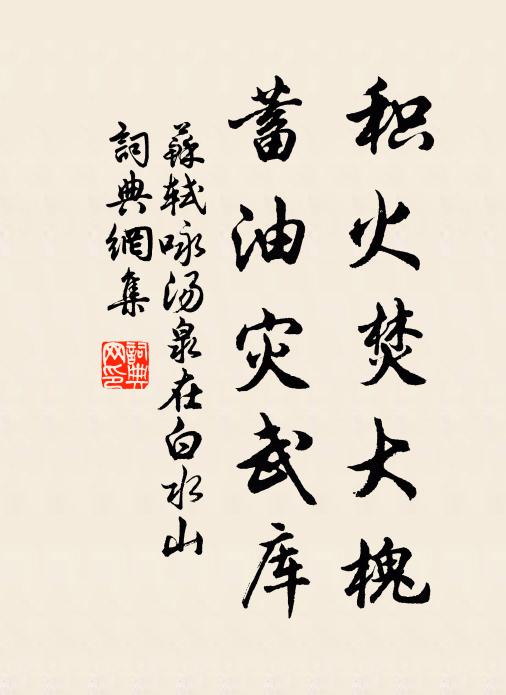 积火焚大槐
蓄油灾武库
蘇轼咏汤泉在白水山
詞典網集
詞典网印